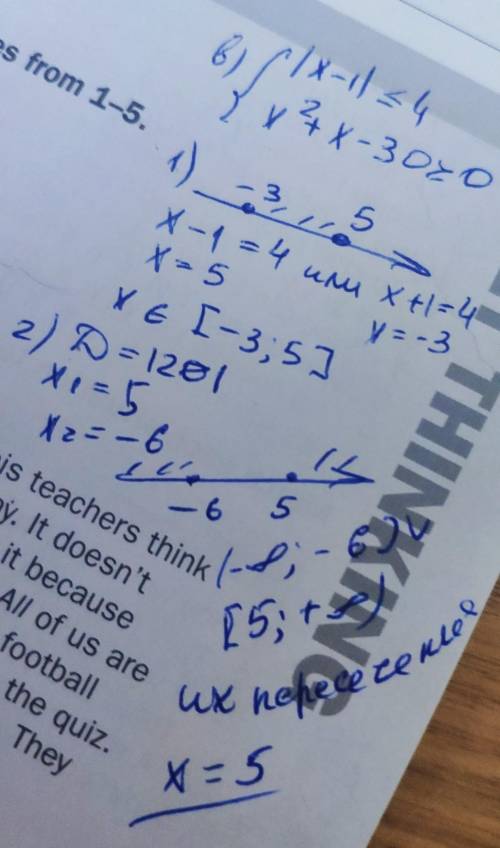 es from 1–5.
в) { |x-1| ≤ 4
x² + x - 30 ≥ 0
1)
-3 5
x - 1 = 4 или x+1=4
x = 5 x = -3
x ∈ [-3; 5]
2) D = 121
x₁ = 5
x₂ = -6
-6 5
(-∞; -6] ∪
[5; +∞)
их пересечение
x = 5
THINKING
his teachers think
ny. It doesn't
it because
All of us are
football
the quiz.
They